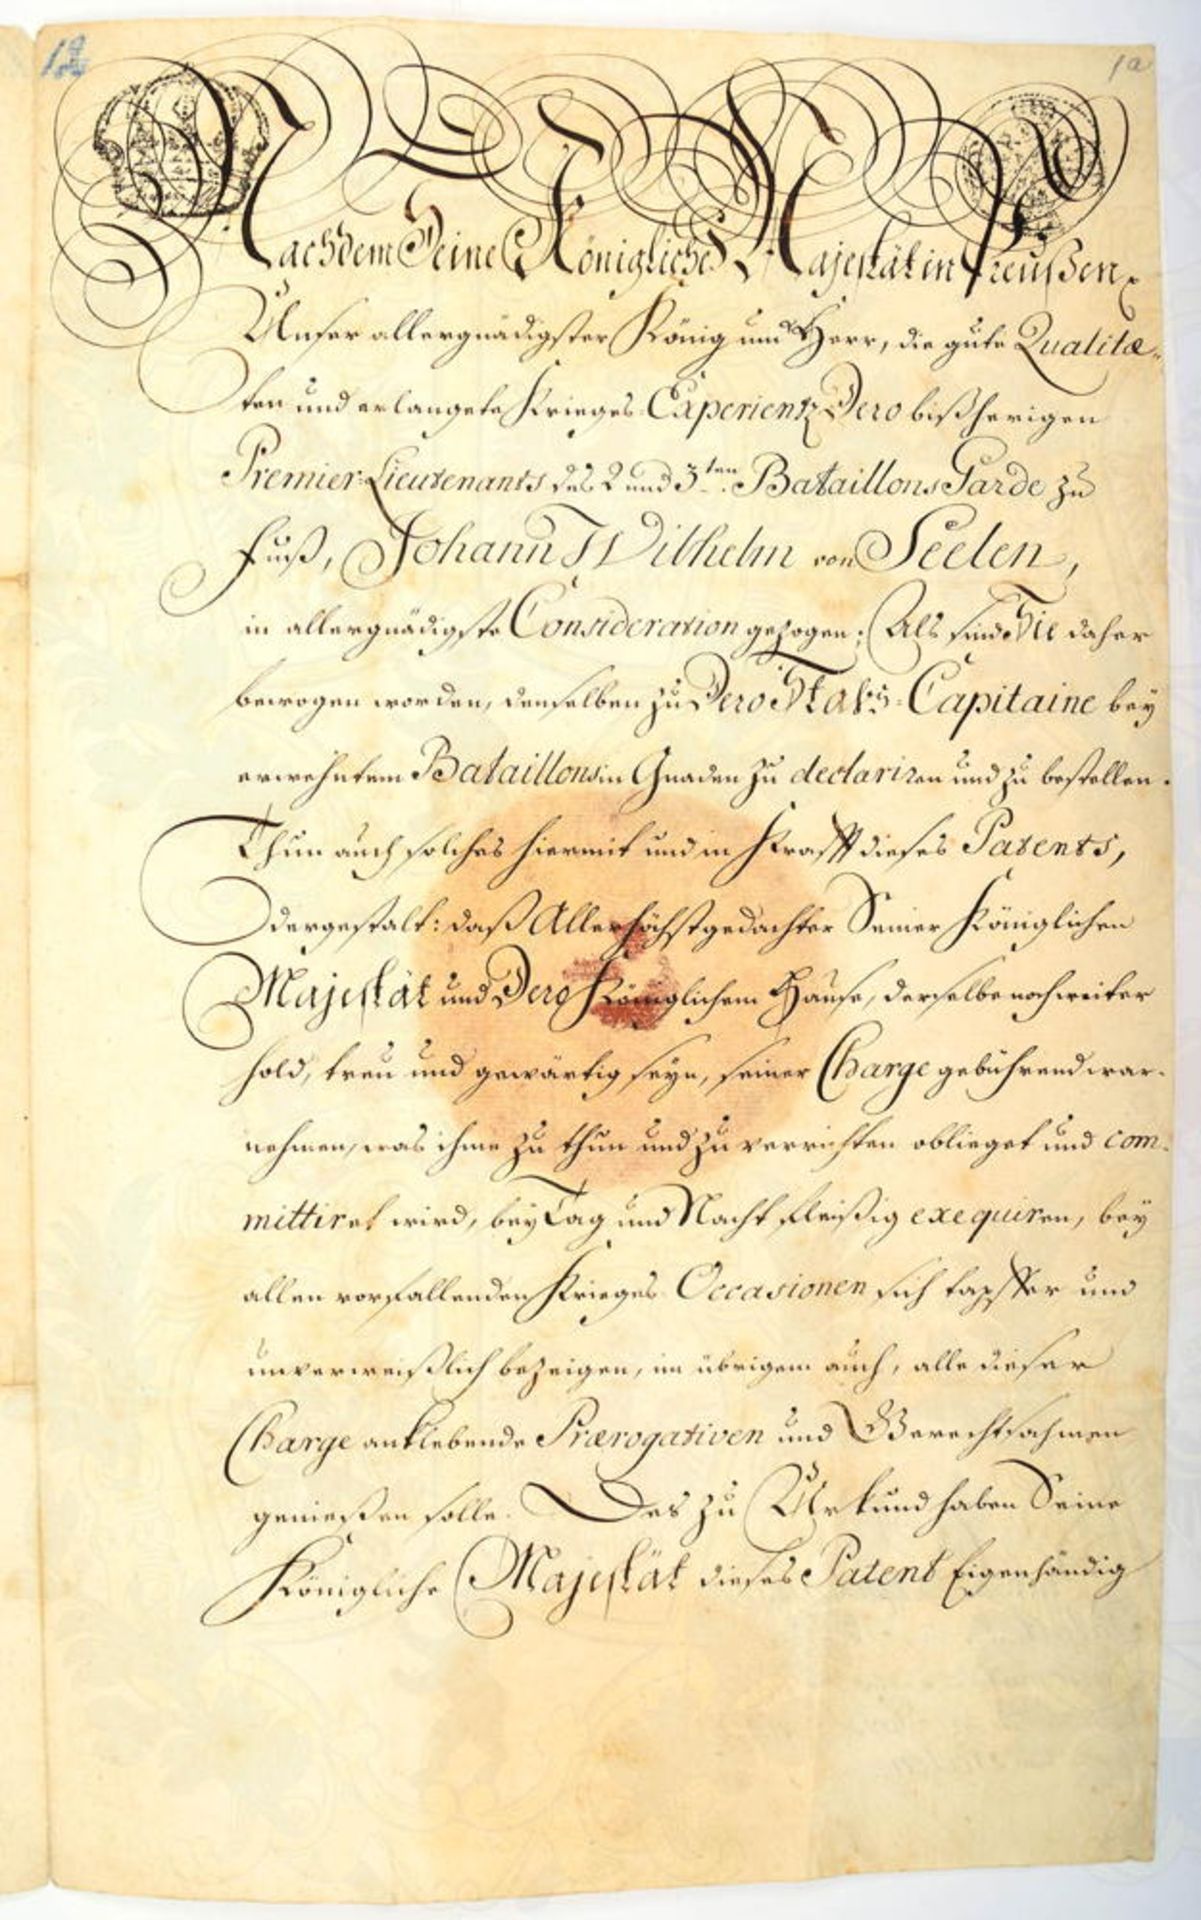 12
1a
Nachdem Seine Königliche Majestät in Preußen
Unser allergnädigster König und Herr, die gute Qualitæ-
ten und erlangete Krieges Experientz Dero bißherigen
Premier-Lieutenants des 2 und 3ten Bataillons Garde zu
Fuß, Johann Wilhelm von Seelen,
in allergnädigste Consideration gezogen; Als sind Sie daher
bewogen worden, denselben zu Dero Stabs-Capitaine bey
erwehntem Bataillons in Gnaden zu declariren und zu bestellen.
Thun auch solches hiermit und in Krafft dieses Patents,
dergestalt: daß Allerhöchstgedachter Seiner Königlichen
Majestät und Dero Königlichem Hause, derselbe noch weiter
hold, treu und gewärtig seyn, seiner Charge gebührend war-
nehmen, was ihme zu thun und zu verrichten oblieget und com-
mittiret wird, bey Tag und Nacht fleißig exequiren, bey
allen vorfallenden Krieges Occasionen sich tapffer und
unverweißlich bezeigen, im übrigem auch, alle dieser
Charge anklebende Prærogativen und Gerechtsahmen
genießen solle. Des zu Urkund haben Seine
Königliche Majestät dieses Patent Eigenhändig